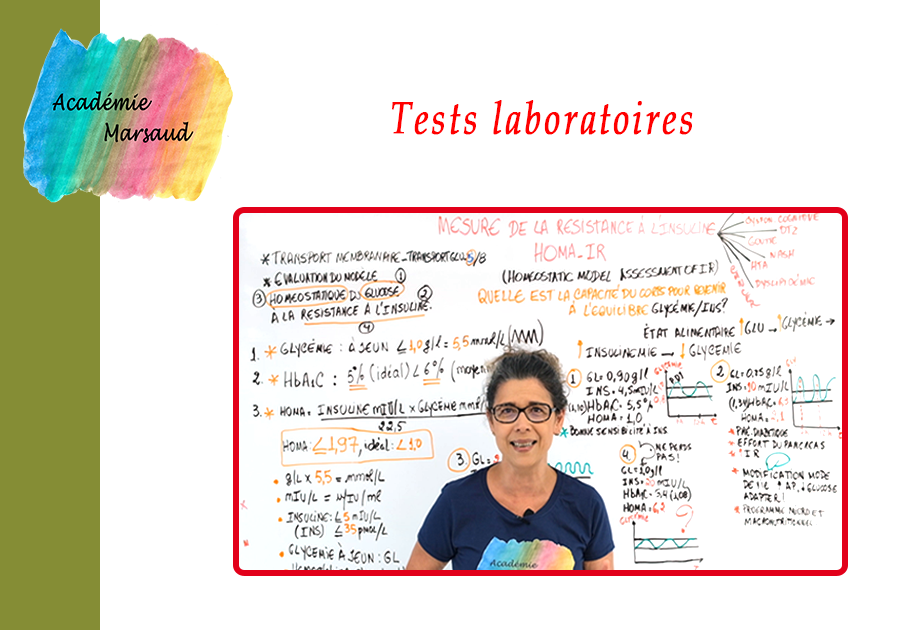 Académie
Marsaud
Tests laboratoires
MESURE DE LA RESISTANCE À L'INSULINE
HOMA_IR
(HOMEOSTATIC MODEL ASSESSMENT OF IR)
QUELLE EST LA CAPACITÉ DU CORPS POUR REVENIR
À L'EQUILIBRE GLYCÉMIE/INS?
COGNITIVE
DT2
GOUTTE
NASH
HTA
DYSLIPIDÉMIE
CANCER
* TRANSPORT MEMBRANAIRE_TRANSPORT GLU
* EVALUATION DU MODELE ①
③ HOMEOSTATIQUE DU GLUCOSE ②
À LA RESISTANCE À L'INSULINE.
④
ÉTAT ALIMENTAIRE ↑ GLU → ↑ GLYCÉMIE →
↑ INSULINEMIE → ↓ GLYCEMIE
1. * GLYCÉMIE : À JEUN ≤ 1,0 g/l = 5,5 mmol/L
2. * HbA1C : 5% (idéal) < 6%
3. * HOMA = INSULINE mIU/L x GLYCÉMIE
22,5
HOMA: <1,97, idéal: <1,0
• g/L x 5,5 = mmol/L
• mIU/L = µIU/ml
• INSULINE: ≤5 mIU/L
(INS) ≤35 pmol/L
• GLYCEMIE À JEUN: GL
① GL= 0,90 g/l
INS= 4,5 mIU/L
HbA1C= 5,5%
HOMA= 1,0
* BONNE SENSIBILITÉ À INS
2 GL= 0,75 g/L
INS= 10 mIU/L
* PRÉ-DIABETIQUE
* EFFORT DU PANCREAS
* IR
* MODIFICATION MODE
DE VIE ↑ AP, ↓ GLUCOSE
ADAPTER!
* PROGRAMME MICRO ET
MACRONUTRITIONNEL
③ GL=
④
NE PERDS
PAS!
GL= 1,0 g/l
INS= 20 mIU/L
HbA1C= 5,4
HOMA= 6,2
GLYCÉMIE
?
Académie